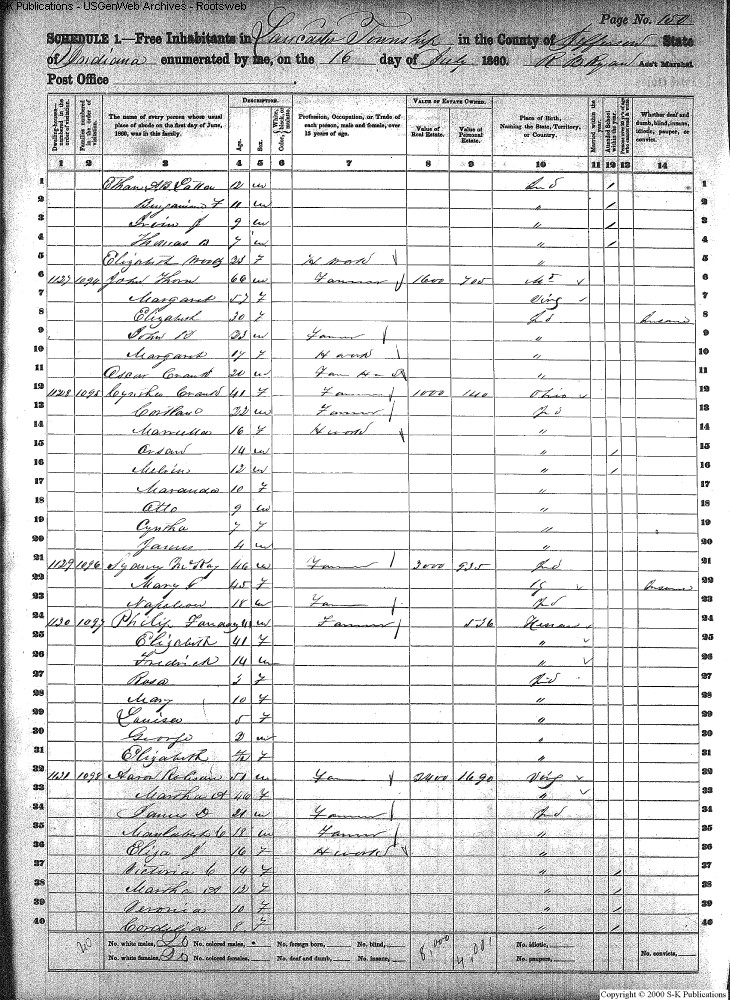 S-K Publications - USGenWeb Archives - Rootsweb
Page No. 150
SCHEDULE 1.—Free Inhabitants in Lancaster Township in the County of Jefferson State
of Indiana enumerated by me, on the 16 day of July 1860. R B Ryan Ass't Marshal
Post Office
Dwelling-houses— numbered in the order of visitation.
Families numbered in the order of visitation.
The name of every person whose usual place of abode on the first day of June, 1860, was in this family.
DESCRIPTION.
Age.
Sex.
Color, White, black, or mulatto.
Profession, Occupation, or Trade of each person, male and female, over 15 years of age.
VALUE OF ESTATE OWNED.
Value of Real Estate.
Value of Personal Estate.
Place of Birth, Naming the State, Territory, or Country.
Married within the year.
Attended School within the year.
Whether deaf and dumb, blind, insane, idiotic, pauper, or convict.
1 2 3 4 5 6 7 8 9 10 11 12 13 14
1 12 m Ind / 1
2 Benjamin F 11 m " / 2
3 Irvin J 9 m " / 3
4 Thomas B 7 m " / 4
5 Elizabeth 23 F H work " 5
6 1127 1094 John Thorn 66 m Farmer 1600 705 Md 6
7 Margaret 57 F Virg 7
8 Elizabeth 30 F Ind Insane 8
9 John 23 m Farmer " 9
10 Margaret 17 F H work " 10
11 Oscar 20 m Farm H " 11
12 1128 1095 Cynthia 41 F Farmer 1000 140 Ohio 12
13 Cortland 22 m Farmer Ind 13
14 16 F H work " 14
15 14 m " / 15
16 Melvin 12 m " / 16
17 Maranda 10 F " 17
18 Otto 9 m " 18
19 Cyntha 7 F " 19
20 James 4 m " 20
21 1129 1096 Sydney McKay 46 m Farmer 3000 535 Ind 21
22 Mary 45 F Ky Insane 22
23 Napoleon 18 m Farmer Ind 23
24 1130 1097 Philip m Farmer 536 Hessen 24
25 Elizabeth 41 F " 25
26 Fredrick 14 m " 26
27 Rosa 3 F Ind 27
28 Mary 10 F " 28
29 Louisa 5 F " 29
30 George 2 m " 30
31 Elizabeth F " 31
32 1131 1098 Aaron Robison 51 m Far 2400 1690 Virg 32
33 Martha A 46 F " 33
34 James D 21 m Farmer Ind 34
35 18 m Farmer " 35
36 Eliza J 16 F H work " 36
37 Victoria C 14 F " / 37
38 Martha A 12 F " / 38
39 Veronica 10 F " / 39
40 Cordelia 8 F " / 40
No. white males, 20 No. colored males, No. foreign born, No. blind, 8,000 14,001 No. idiotic, No. convicts,
No. white females, 20 No. colored females, No. deaf and dumb, No. insane, No. paupers,
Copyright © 2000 S-K Publications